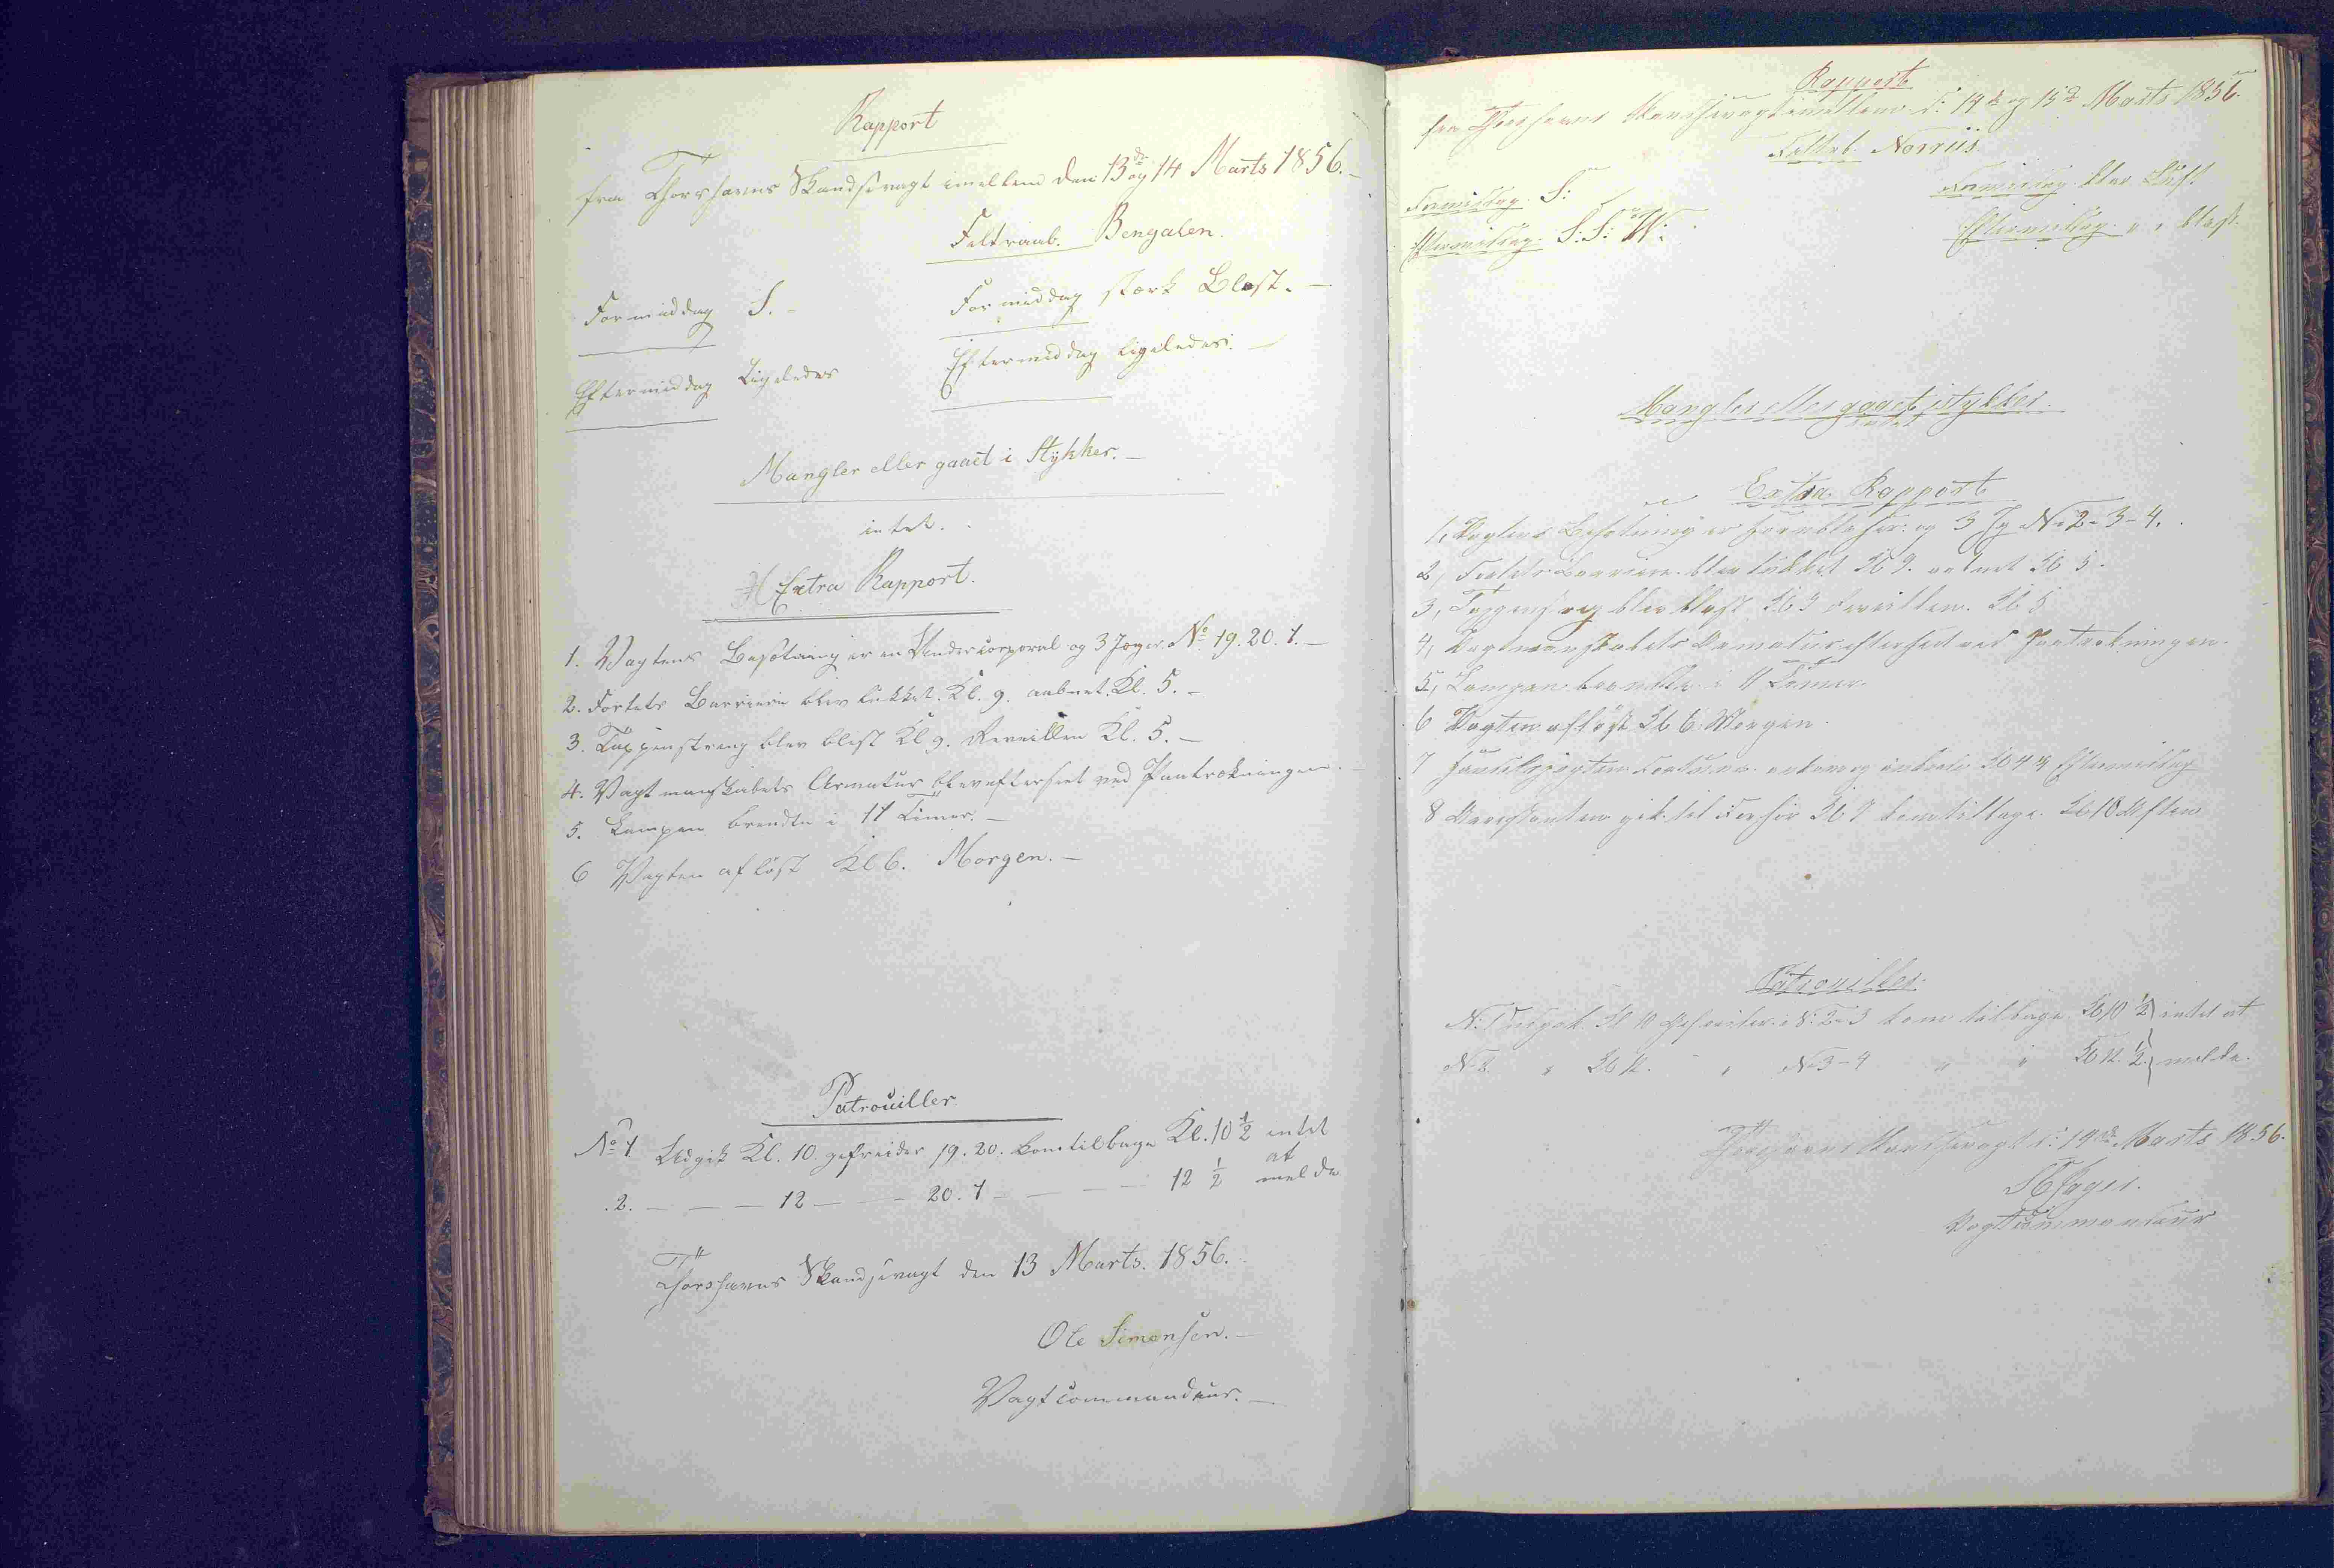 Rapport
fra Thorshavns Skandsevagt imellem den 13de og 14 Marts 1856.
Feltraab. Bengalen.
Formiddag S. Formiddag stærk Blæst.
Eftermiddag Ligeledes Eftermiddag ligeledes.
Mangler eller gaaet i Stykker.
intet.
Extra Rapport.
1. Vagtens Besætning er en Undercorporal og 3 Jæger No 19. 20. 1.
2. Fortets Barriere blev lukket Kl. 9. aabnet Kl. 5.
3. Tappenstreg blev blæst Kl 9. Reveillen Kl. 5.
4. Vagtmanskabets Armatur blev efterseet ved Paatrækningen.
5. Lampen brendte i 11 Timer.
6 Vagten afløst Kl 6. Morgen.
Patrouiller.
No 1 Udgik Kl. 10. gefreider 19. 20. kom tilbage Kl. 10 1/2 intet
at
2. — — — 12 — — 20. 1 — — — 12 1/2 melde
Thorshavns Skandsevagt den 13 Marts. 1856.
Ole Simonsen.
Vagtcommandeur.
Rapport
fra Thorshavns Skandsevagt imellem d: 14de og 15de Marts 1856.
Feltrb. Norriis
Formiddag. S: Formiddag blev Luft
Eftermiddag. S: S: W: Eftermiddag " " blæst.
Mangler eller gaaet i stykker.
intet
Extra Rapport
1, Vagtens Besætning er Hornblæser og 3 Jg No 2-3-4.
2, Fortets Barriere blev lukket Kl 9. aabnet Kl 5.
3, Tappenstreg blev blæst Kl 9 Reveillen. Kl 5
4, Vagtmanskabets Armatur efterseet ved Paatrækningen.
5, Lampen brendte i 11 Timer.
6 Vagten afløst Kl 6 Morgen.
7 Handelsjagten ankom Kl 4 Eftermiddag
8 Arrestanten gik til Forhør Kl 7 kom tilbage Kl 10 Aften
Patrouiller.
N: 1 udgik Kl 10 Gefreider: N: 2-3 kom tilbage Kl 10 1/2 intet at
N: 2 " Kl 12. " N: 3-4 " " Kl 12 1/2 melde.
Thorshavns Skandsevagt d: 14de Marts 1856.
Vagtcommandeur